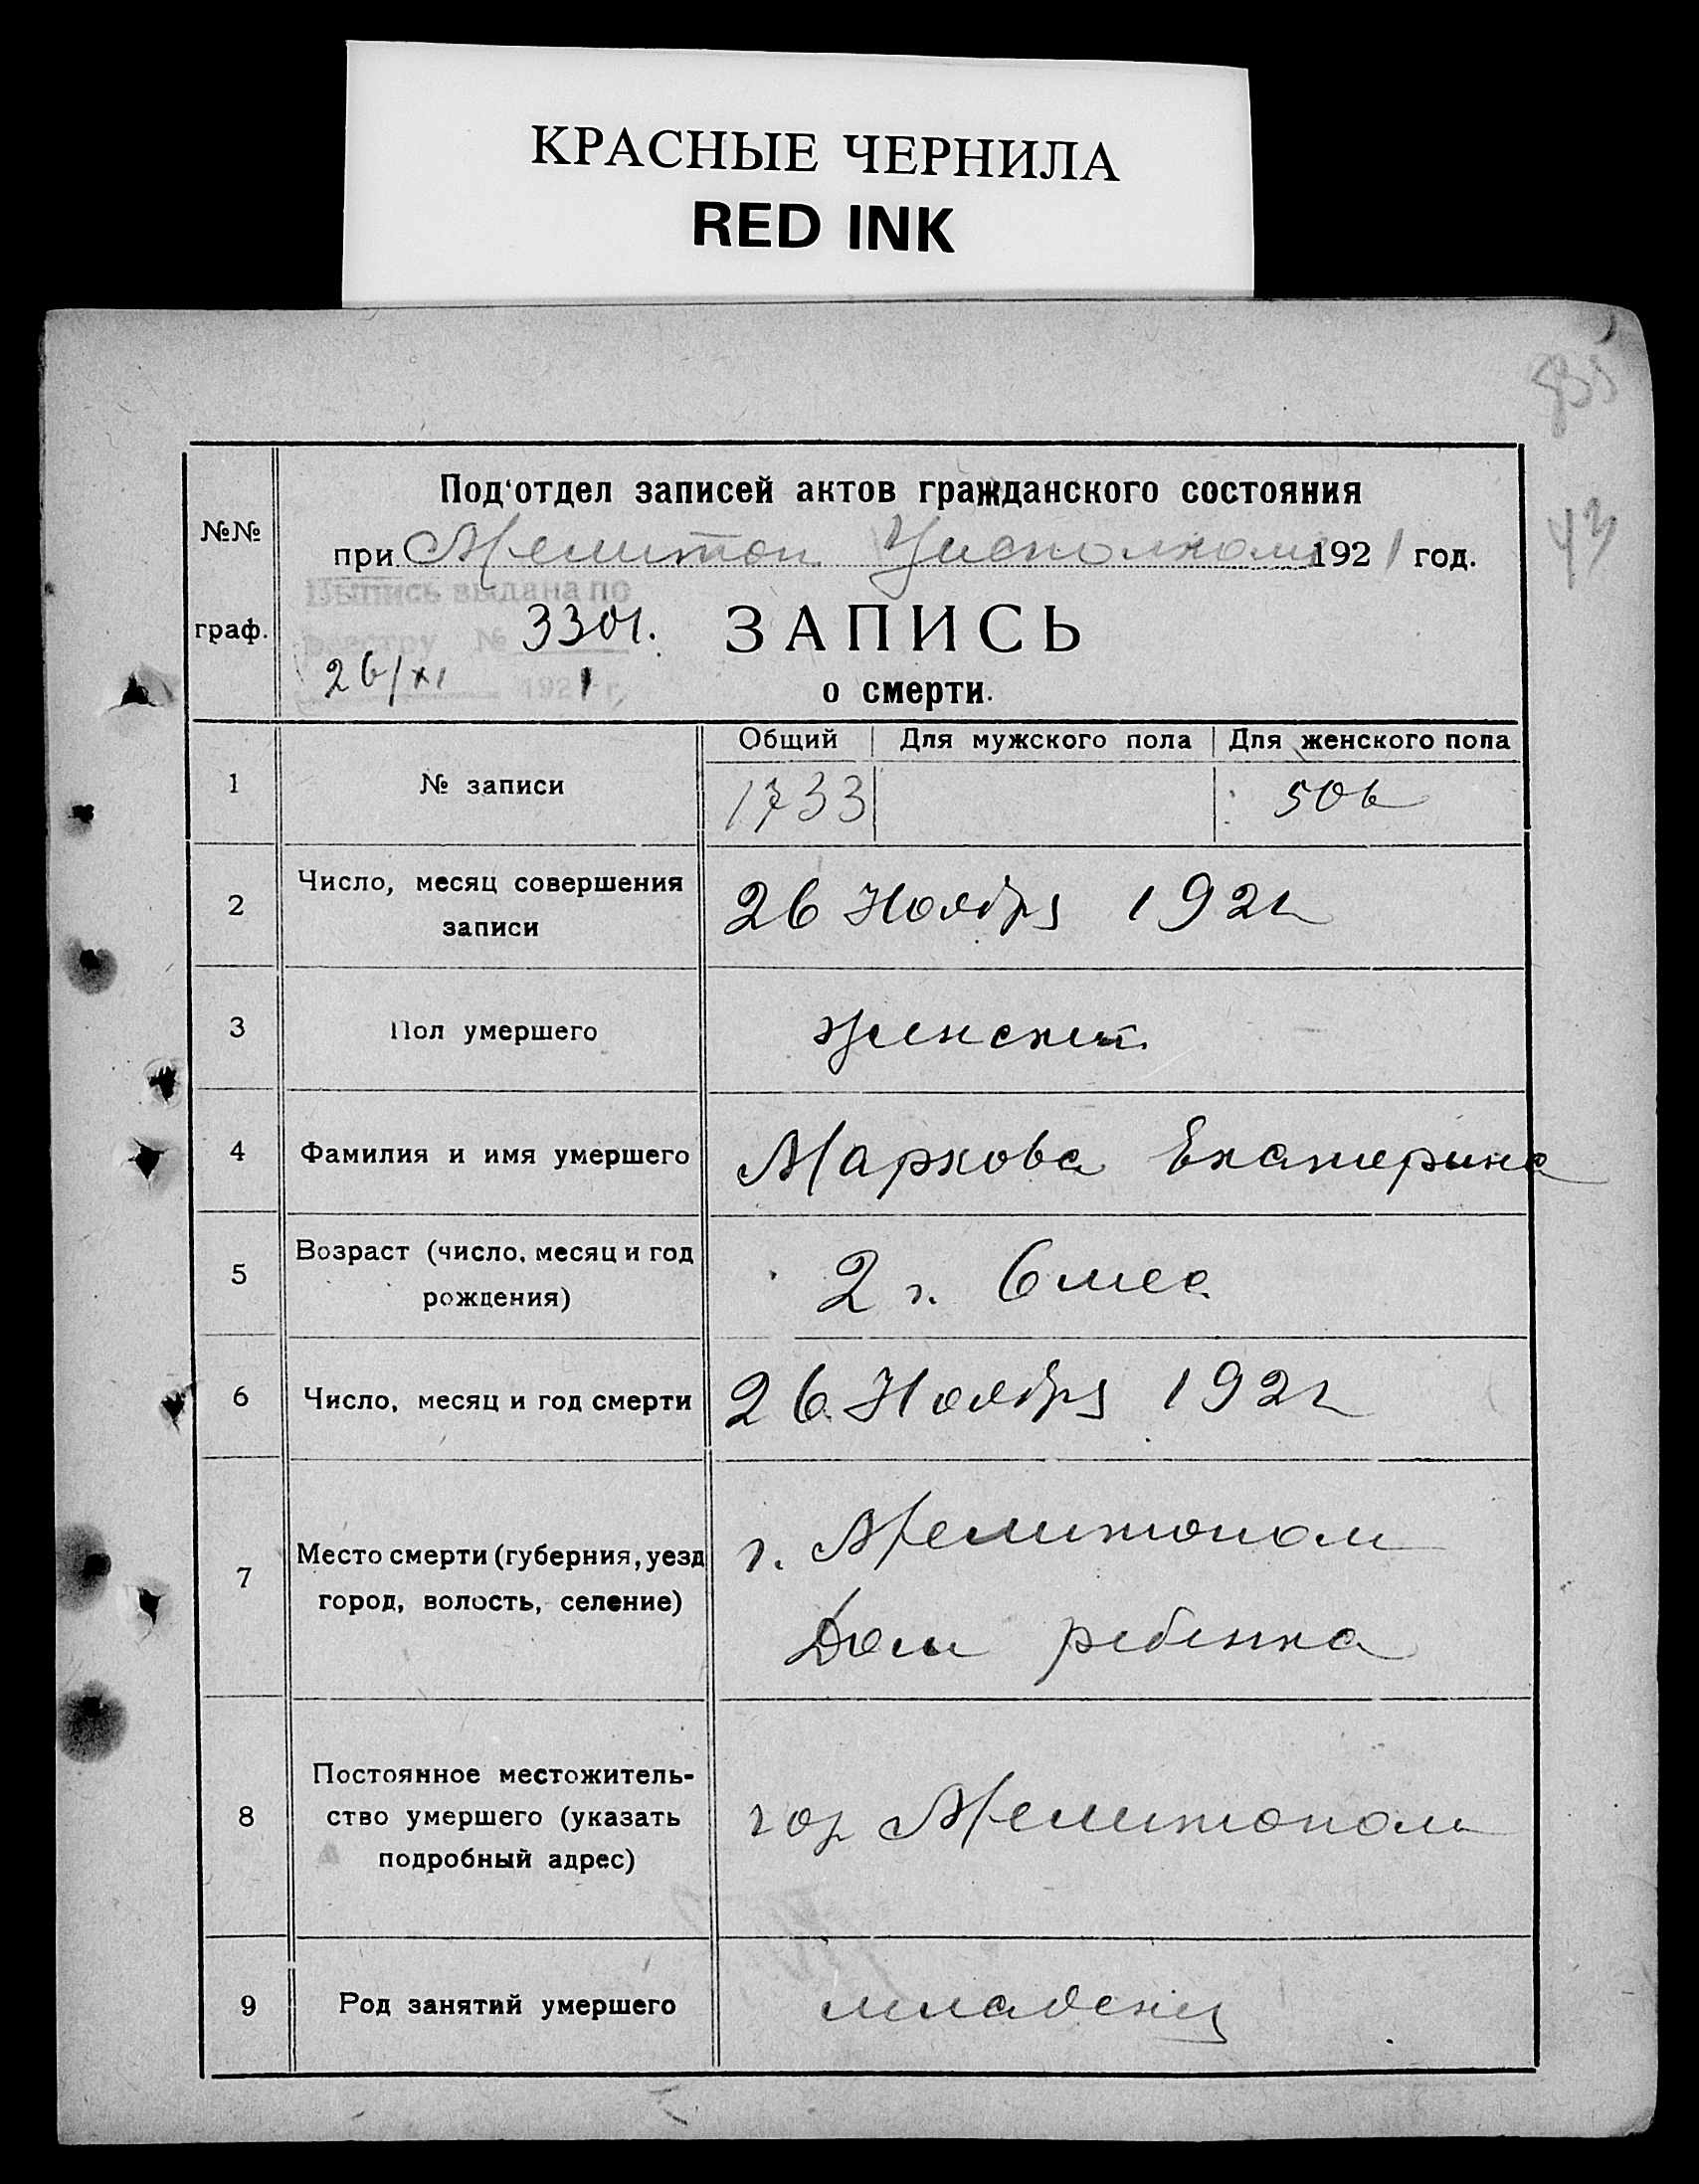 КРАСНЫЕ ЧЕРНИЛА
RED INK
43
№№
граф.
Под‘отдел записей актов гражданского состояния
при Мелитоп Уисполкоме 1921 год.
Выпись выдана по
реестру № 3301.
26/XI 1921 г.
ЗАПИСЬ
о смерти.
Общий Для мужского пола Для женского пола
1 № записи 1733 506
2 Число, месяц совершения
записи
26 Ноября 1921
3 Пол умершего женский
4 Фамилия и имя умершего Маркова Екатерина
5 Возраст (число, месяц и год
рождения)
2 г. 6 мес.
6 Число, месяц и год смерти 26 Ноября 1921
7 Место смерти (губерния, уезд
город, волость, селение)
г. Мелитополь
Дом ребенка
8 Постоянное местожитель-
ство умершего (указать
подробный адрес)
гор Мелитополь
9 Род занятий умершего младенец